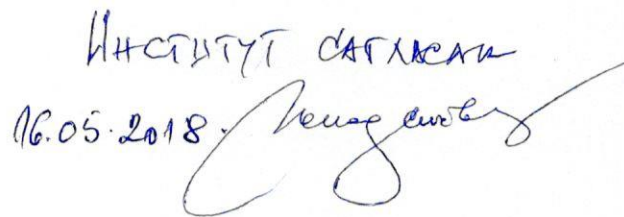 ИНСТИТУТ САГЛАСАН
16.05.2018.